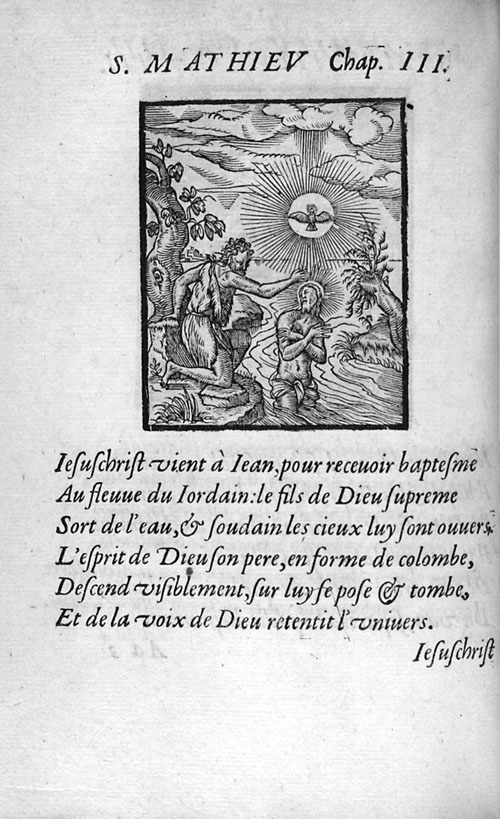 S. MATHIEV Chap. III.
Ieſuſchriſt vient à Iean, pour receuoir bapteſme
Au fleuue du Iordain: le fils de Dieu ſupreme
Sort de l'eau, & ſoudain les cieux luy ſont ouuers.
L'eſprit de Dieu ſon pere, en forme de colombe,
Deſcend viſiblement, ſur luy ſe poſe & tombe,
Et de la voix de Dieu retentit l'vniuers.
Ieſuſchriſt